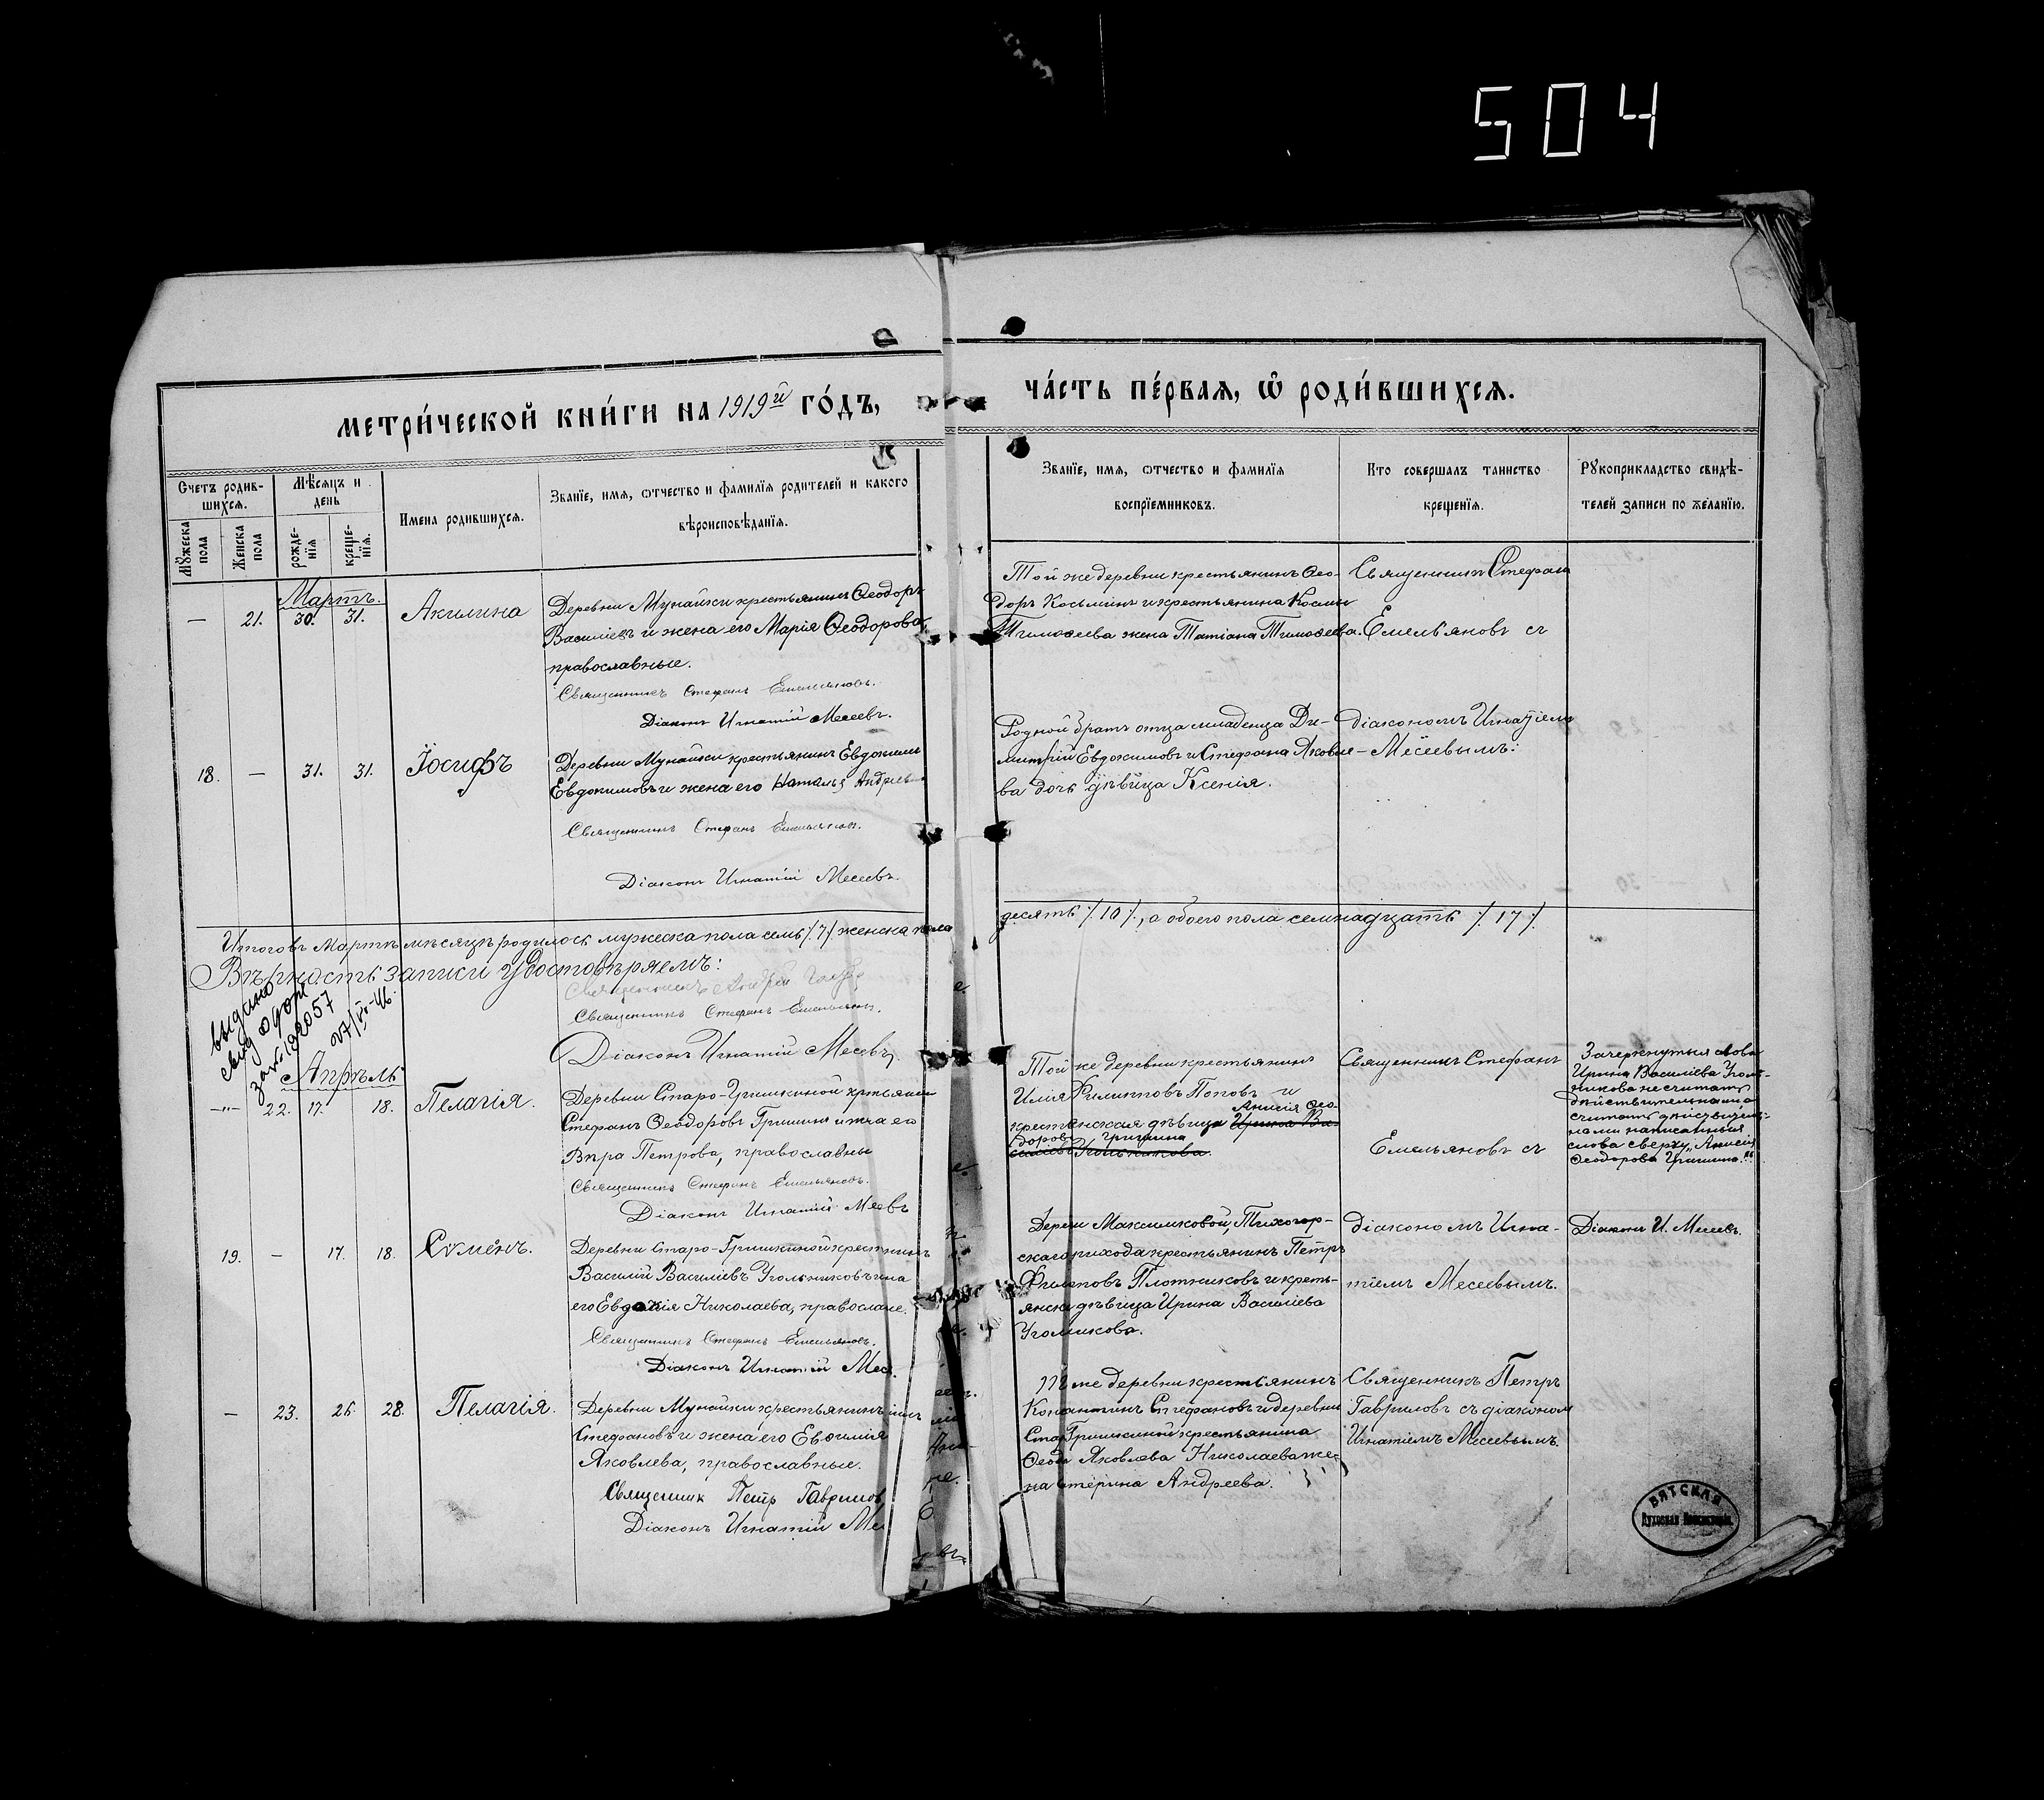 504
МЕТРИ́ЧЕСКОЙ КНИ́ГИ НА 1919й ГО́ДЪ,
ЧА́СТЬ ПЕ́РВАЯ, Ѡ РОДИ́ВШИХСЯ.
Счетъ родив-
шихся.
Мꙋжеска
пола
Женска
пола
Мѣсяцъ и
день
рожде-
нїя
креще-
нїя.
Имена родившихся.
Званїе, имя, ѡтчество и фамилїя родителей и какого
вѣроисповѣданїя.
Званїе, имя, ѡтчество и фамилїя
воспрїемниковъ.
Кто совершалъ таинство
крещенїя.
Рꙋкоприкладство свидѣ-
телей записи по желанїю.
Мартъ.
— 21. 30. 31. Акилина
Деревни Мунайки крестьянинъ Ѳеодоръ
Василіевъ и жена его Марія Ѳеодорова,
православные.
Священникъ Стефанъ Емельяновъ.
Діаконъ Игнатій Месеевъ.
Той же деревни крестьянинъ Ѳео-
доръ Косьминъ и крестьянина Космы
Тимоѳеева жена Татіана Тимоѳеева.
Священникъ Стефанъ
Емельяновъ съ
18. — 31. 31. Іосифъ
Деревни Мунайки крестьянинъ Евдокимъ
Евдокимовъ и жена его Наталья Андреева
Священникъ Стефанъ Емельяновъ.
Діаконъ Игнатій Месеевъ.
Родной братъ отца младенца Ди-
митрій Евдокимовъ и Стефана Яковле-
ва дочь дѣвица Ксенія.
діакономъ Игнатіемъ
Месеевымъ:
Итого въ Мартѣ мѣсяцѣ родилось мужеска пола семь /.7/. женска пола
десять /.10/., а обоего пола семнадцать /.17/.
Вѣрность записи удостовѣряемъ:
Священникъ
Священникъ Стефанъ Емельяновъ.
Діаконъ Игнатій Месеевъ.
выдано
свид о рож
132057
Апрѣль
—"— 22. 17. 18. Пелагія.
Деревни Старо-Гришкиной кртьянин
Стефанъ Ѳеодоровъ Гришинъ и жна его
Вѣра Петрова, православны
Священникъ Стефанъ Емельяновъ.
Діаконъ Игнатій Месевъ
Той же деревни крестьянинъ
Илія Филипповъ Поповъ и
крестьянская дѣвица Ирина Ва-
Анисія Ѳео-
дорова Гришина
силіева Угольникова.
Священникъ Стефанъ
Емельяновъ съ
Зачеркнутыя слова
Ирина Василіева Уголь-
никова не считать
дѣйствительными а
считать дѣйствитель-
ными написанныя
слова сверху „Анисія
Ѳеодорова Гришина."
19. — 17. 18. Сѵмео́нъ.
Деревни Старо-Гришкиной крестьнинъ
Василій Василіевъ Угольниковъ и на
его Евдокія Николаева, православне.
Священникъ Стефанъ Емельяновъ.
Діаконъ Игнатій Мес
Дереви Максимковой, Тихогор-
скаго прихода крестьянинъ Петръ
Филиповъ Плотниковъ и кресть-
янска дѣвица Ирина Василіева
Уголникова.
діакономъ Игна-
тіемъ Месеевымъ.
Діаконъ И. Месеевъ.
— 23. 26. 28. Пелагія.
Деревни Мунайки крестьянинъ
Стефановъ и жена его Евѳимія
Яковлева, православные.
Священник Петр Гаврилов
Діаконъ Игнатій Ме
же деревни крестьянинъ
Констнтинъ Стефановъ и деревни
Стар Гришкиной крестьянина
Ѳеод Яковлева Николаева же-
на терина Андреева.
Священникъ Петръ
Гавриловъ съ діакономъ
Игнатіемъ Месеевымъ.
ВЯТСКАЯ
Духовная Консисторія